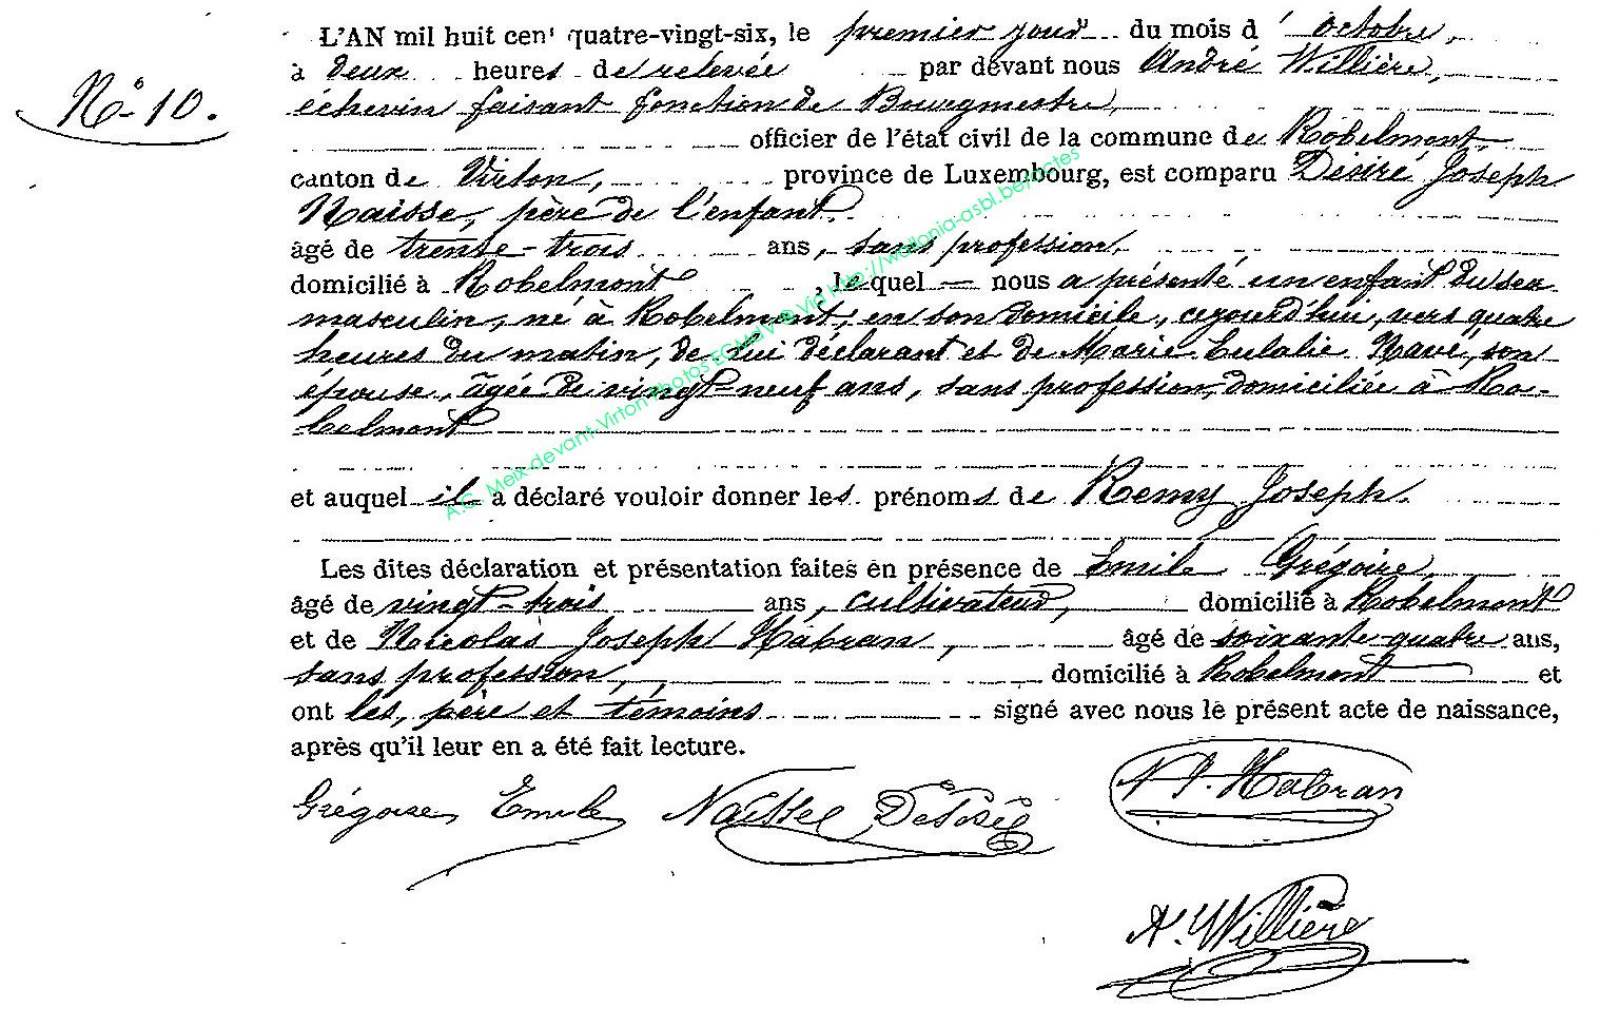 L'AN mil huit cent quatre-vingt-six, le premier jour du mois d' octobre,
à deux heures de relevée par devant nous André Willière,
N° 10.
échevin faisant fonction de Bourgmestre,
officier de l'état civil de la commune de Robelmont,
canton de Virton, province de Luxembourg, est comparu Désiré Joseph
Naisse, père de l'enfant,
âgé de trente-trois ans, sans profession,
domicilié à Robelmont, lequel — nous a présenté un enfant du sexe
masculin, né à Robelmont, en son domicile, cejourd'hui, vers quatre
heures du matin, de lui déclarant et de Marie Eulalie Navé, son
épouse, âgée de vingt-neuf ans, sans profession, domiciliée à Ro-
belmont
et auquel il a déclaré vouloir donner les prénoms de Remy Joseph.
Les dites déclaration et présentation faites en présence de Emile Grégoire,
âgé de vingt-trois ans, cultivateur, domicilié à Robelmont
et de Nicolas Joseph Habran, âgé de soixante-quatre ans,
sans profession, domicilié à Robelmont et
ont les, père et témoins signé avec nous le présent acte de naissance,
après qu'il leur en a été fait lecture.
Grégoire Emile Naisse Désiré N J. Habran
A. Willière
A.C. Meix-devant-Virton Photos EGMdV © Via http://wallonia-asbl.be/actes